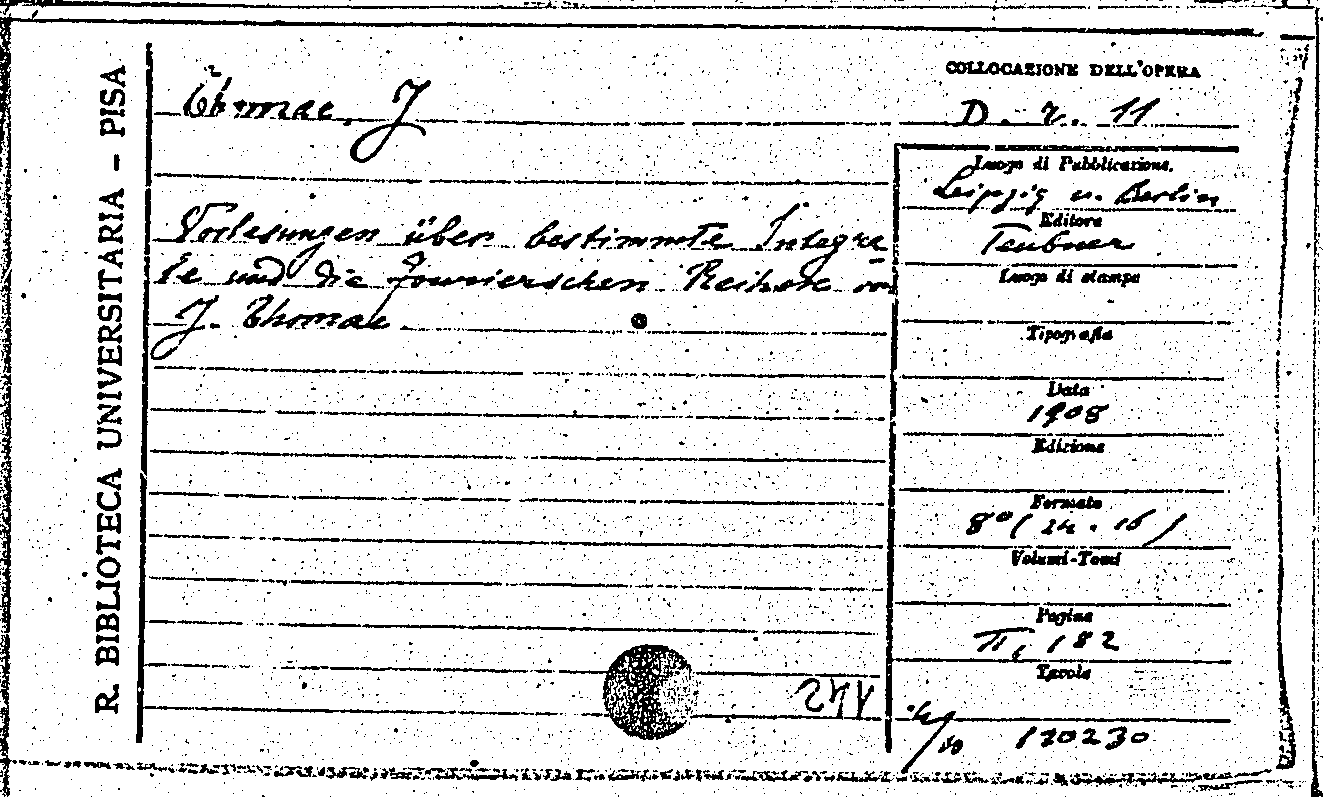 R. BIBLIOTECA UNIVERSITARIA - PISA
Thomae, J
COLLOCAZIONE DELL'OPERA
D. 2. 11
Vorlesungen über bestimmte Integra-
le und die Fourierschen Reihen von
J. Thomae.
Luogo di Pubblicazione.
Leipzig u. Berlin
Editore
Teubner
Luogo di stampa
Tipografia
Data
1908
Edizione
Formato
8º (24.16)
Volumi-Tomi
Pagine
182
Tavole
120230